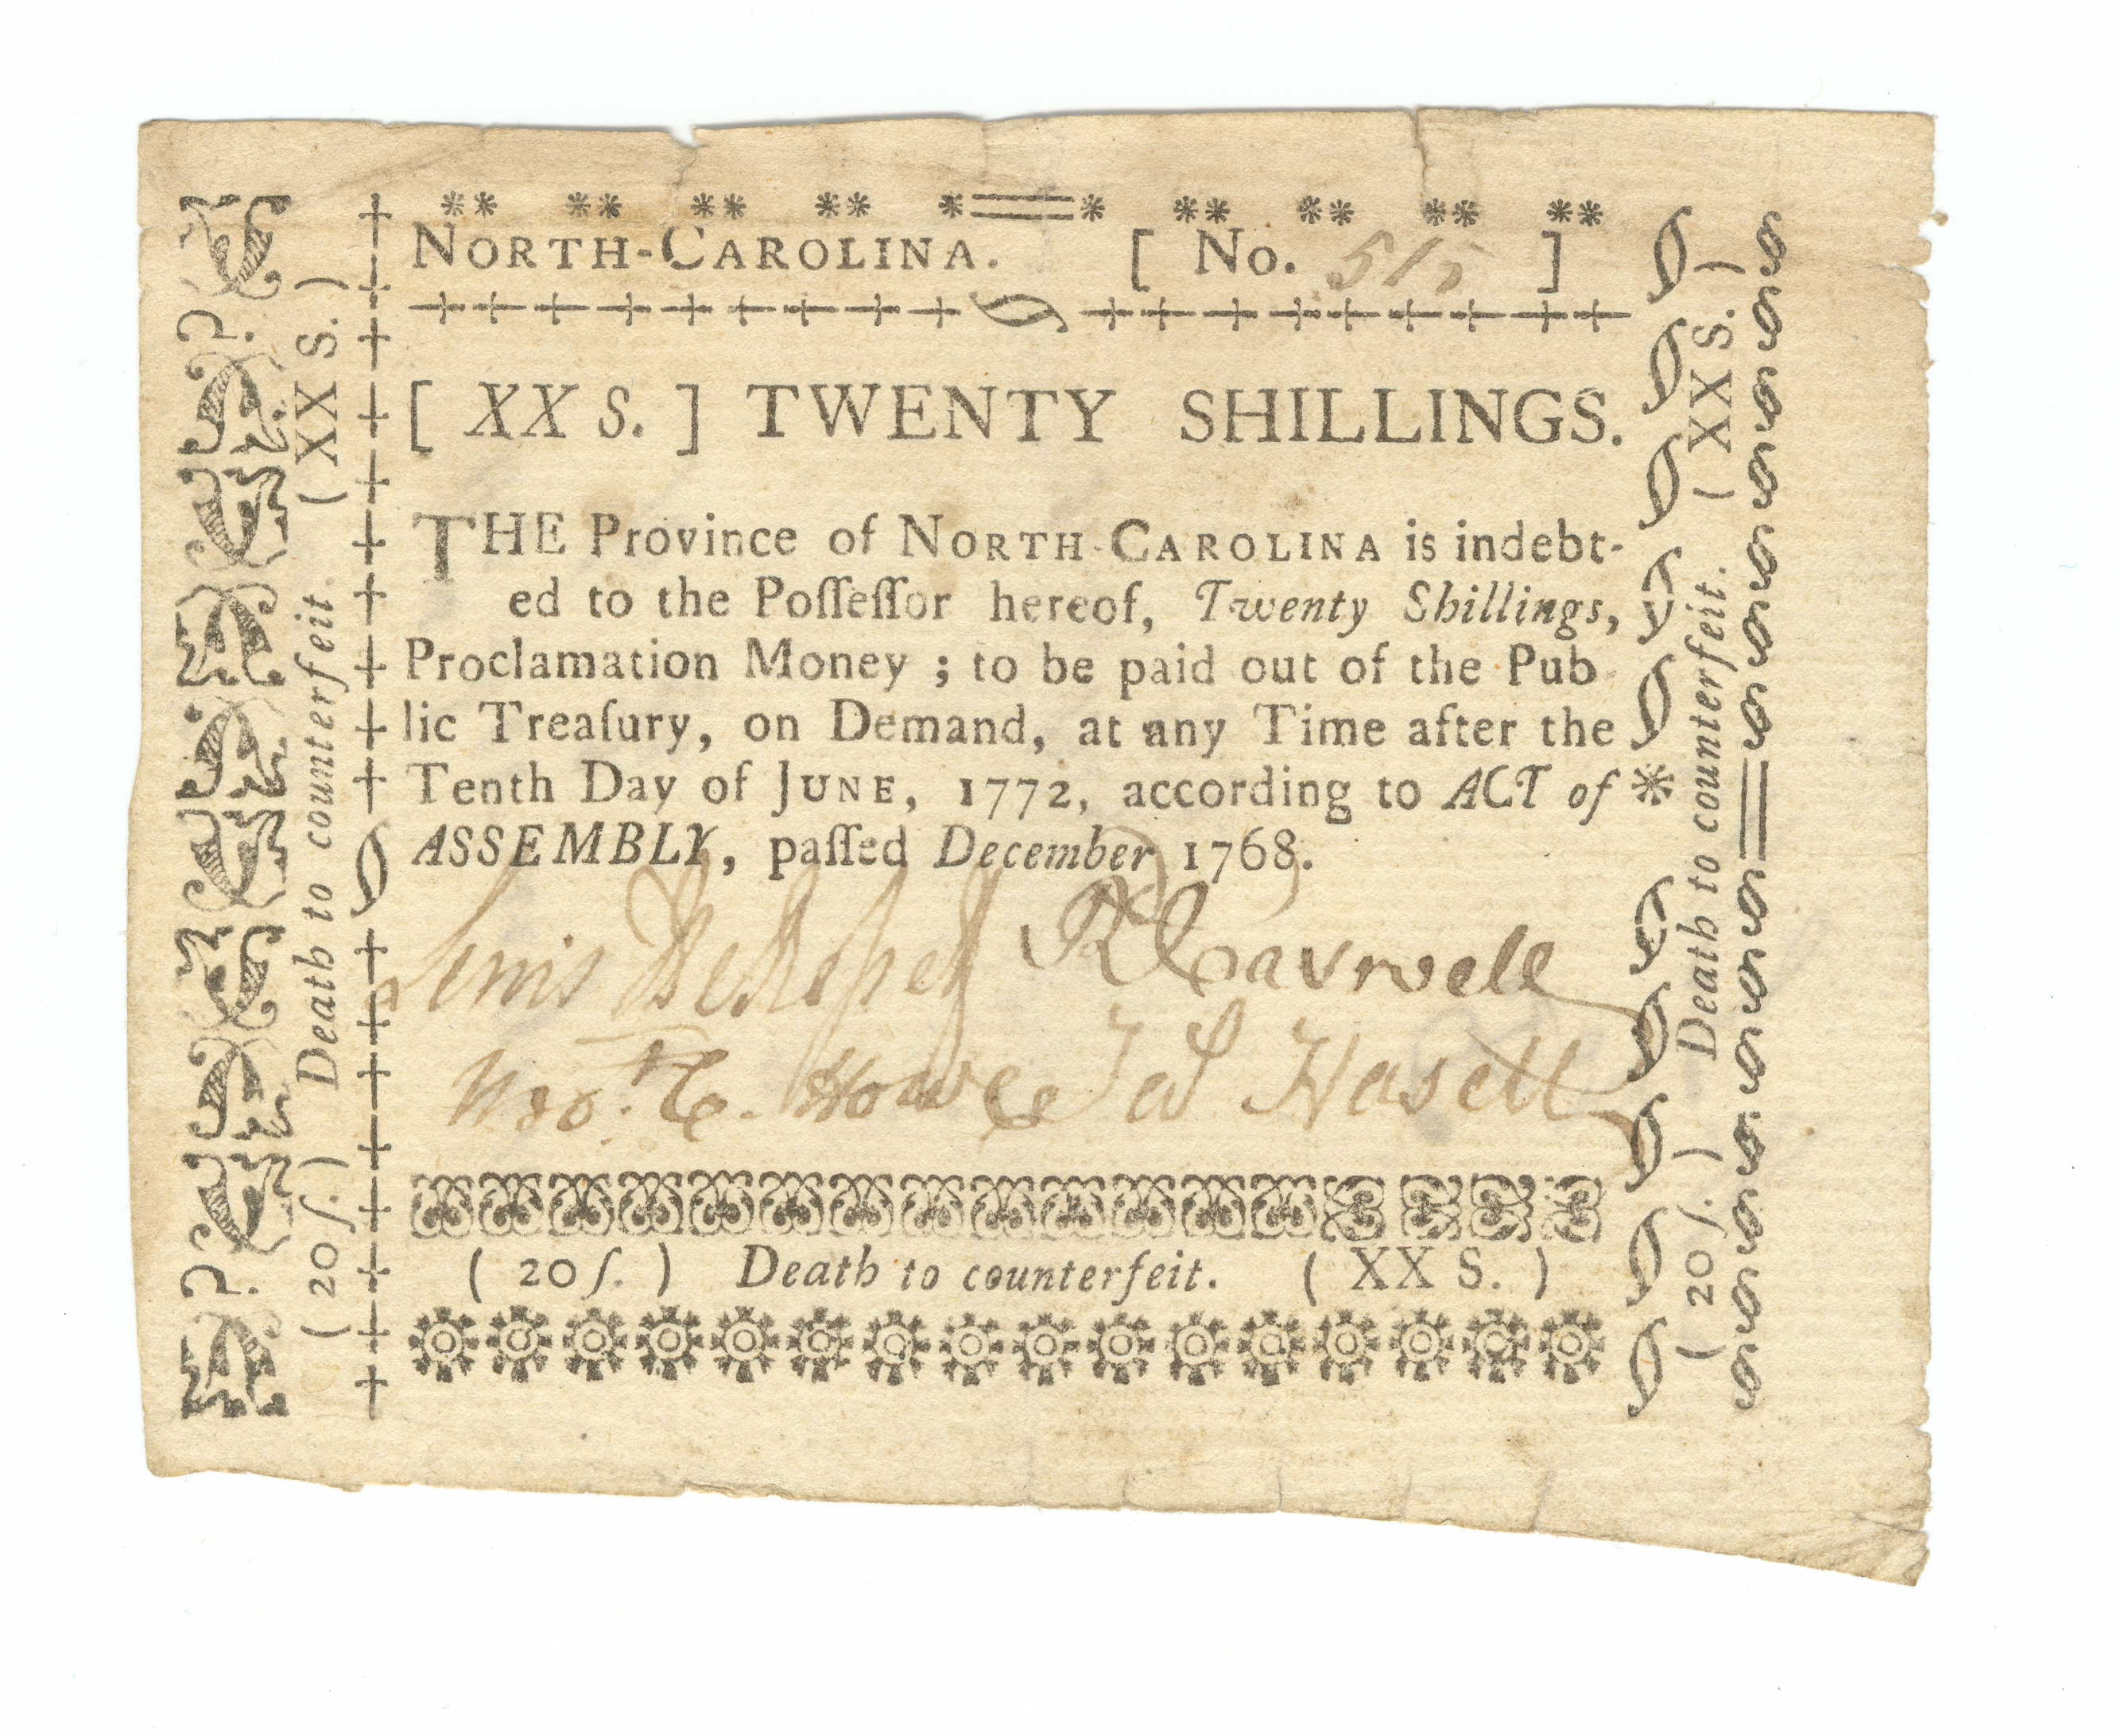 NORTH-CAROLINA. [ No. 515 ]
[ XX S. ] TWENTY SHILLINGS.
THE Province of NORTH-CAROLINA is indebt-
ed to the Poſſeſſor hereof, Twenty Shillings,
Proclamation Money ; to be paid out of the Pub
lic Treaſury, on Demand, at any Time after the
Tenth Day of JUNE, 1772, according to ACT of
ASSEMBLY, paſſed December 1768.
Lewis DeRosset R Caswell
Howe Jaˢ Hasell
( 20 ſ. ) Death to counterfeit. ( XX S. )
( 20 ſ. ) Death to counterfeit. ( XX S. )
( 20 ſ. ) Death to counterfeit. ( XX S. )